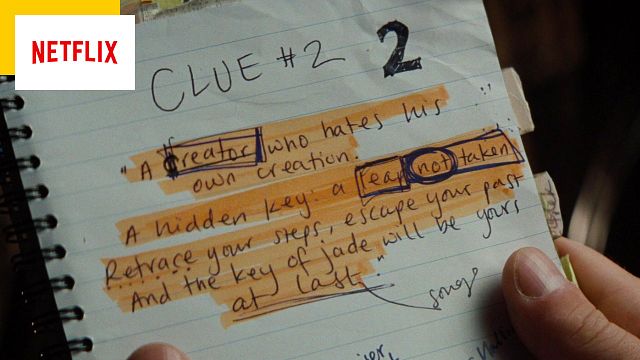 NETFLIX
CLUE #2 2
"A creator who hates his
own creation.
A hidden key: a leap not taken
Retrace your steps, escape your past
And the key of jade will be yours
at last."
song?